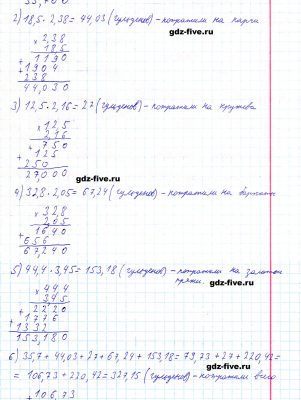 2) 18,5 · 2,38 = 44,03 (гульденов) - потратили на парчи
gdz-five.ru
× 2,38
18,5
+ 1190
1904
238
44,030
gdz-five.ru
3) 12,5 · 2,16 = 27 (гульденов) - потратили на кружева
× 12,5
2,16
+ 750
125
250
27,000
gdz-five.ru
4) 32,8 · 2,05 = 67,24 (гульденов) - потратили на
× 32,8
2,05
+ 1640
656
67,240
gdz-five.ru
5) 44,4 · 3,45 = 153,18 (гульденов) - потратили на золотой
пряжи.
gdz-five.ru
× 44,4
3,45
+ 2220
+ 1776
1332
153,180
gdz-five.ru
6) 35,7 + 44,03 + 27 + 67,24 + 153,18 = 79,73 + 27 + 220,42 =
= 106,73 + 220,42 = 327,15 (гульденов) - потратили всего
+ 106,73
gdz-five.ru